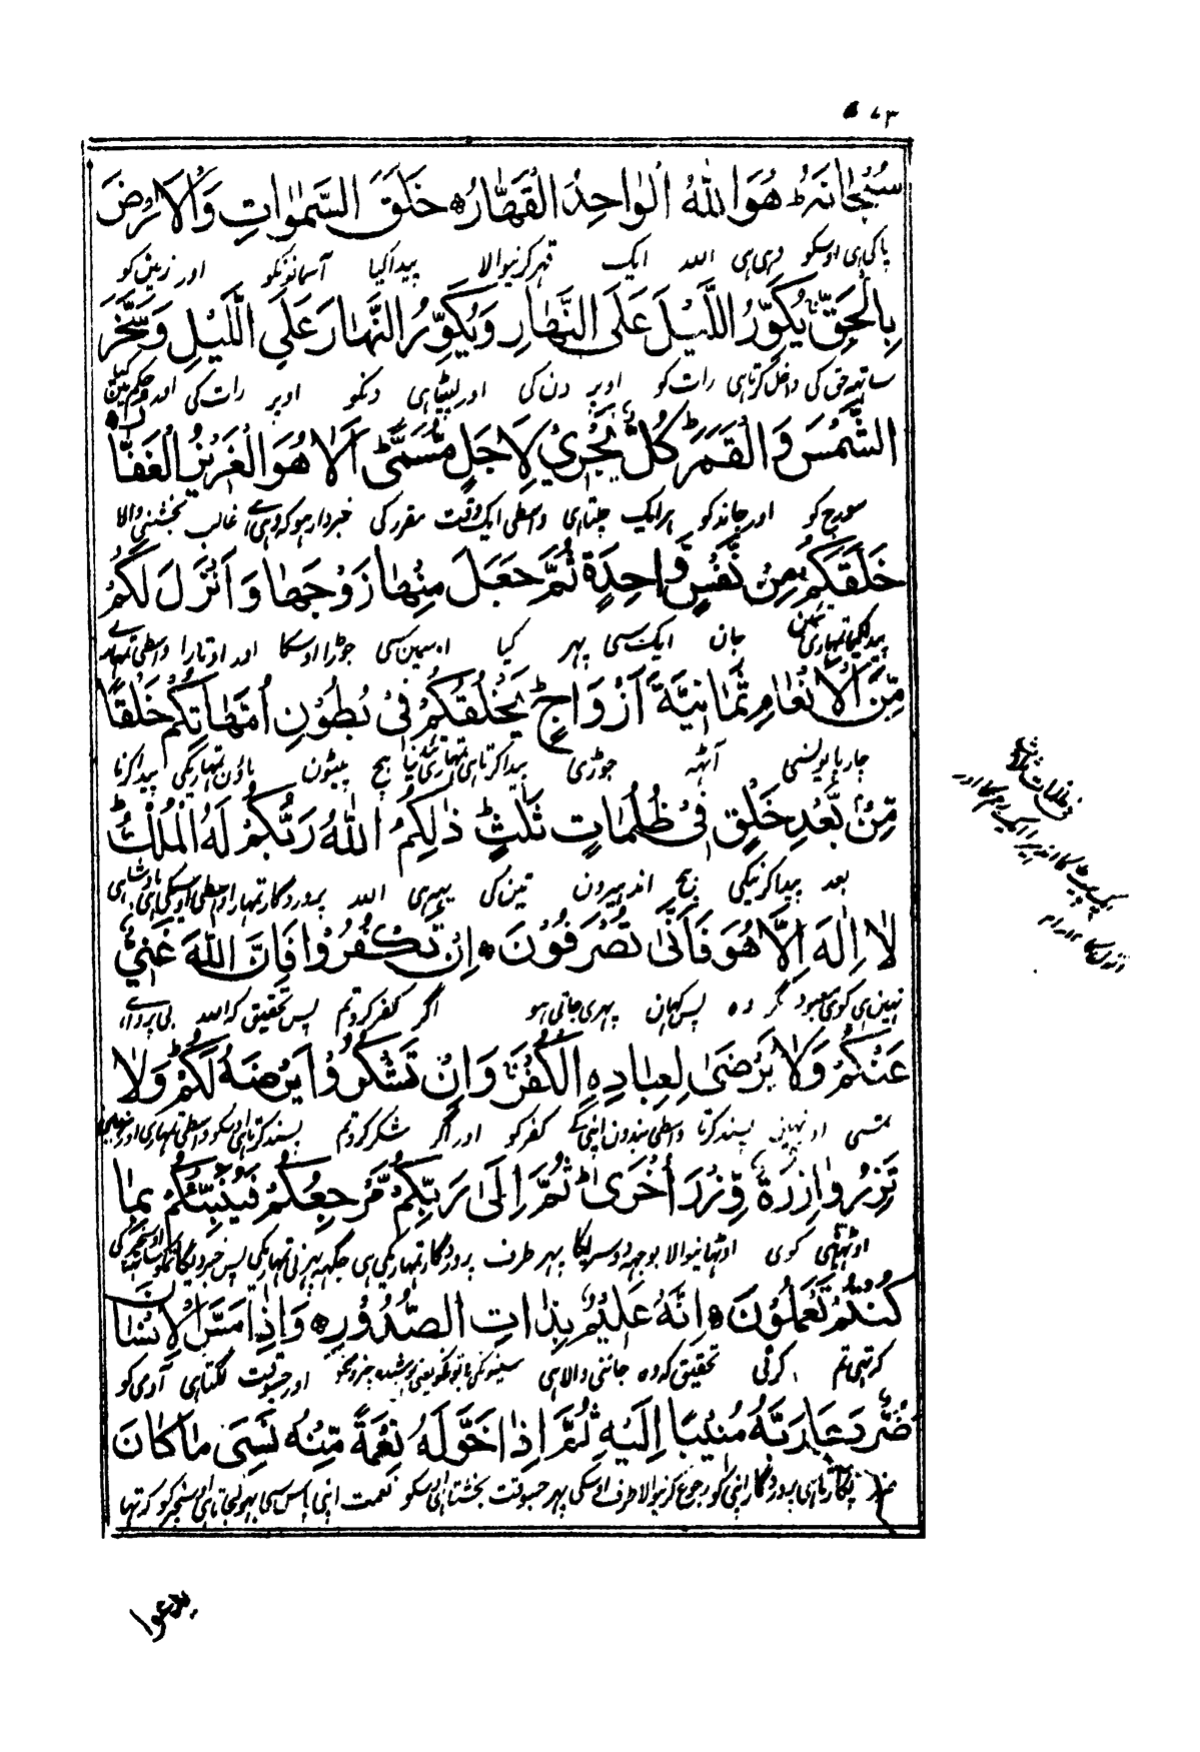 سُبْحَانَهٗ هُوَ اللّٰهُ الْوَاحِدُ الْقَهَّارُ خَلَقَ السَّمٰوَاتِ وَالْاَرْضَ
پاکی ہی اوسکو وہی ہی اللہ ایک قہر کرنیوالا پیدا کیا آسمانونکو اور زمین کو
بِالْحَقِّ يُكَوِّرُ اللَّيْلَ عَلَى النَّهَارِ وَيُكَوِّرُ النَّهَارَ عَلَى اللَّيْلِ وَسَخَّرَ
ساتہہ حق کی داخل کرتا ہی رات کو اوپر دن کی اور لپیٹتا ہی دنکو اوپر رات کی اور
الشَّمْسَ وَالْقَمَرَ كُلٌّ يَجْرِيْ لِاَجَلٍ مُّسَمًّى اَلَا هُوَ الْعَزِيْزُ الْغَفَّارُ
سورج کو اور چاند کو ہر ایک چلتا ہی واسطی ایک وقت مقرر کی خبردار ہو کہ وہی ہے غالب بخشنی والا
خَلَقَكُمْ مِنْ نَّفْسٍ وَّاحِدَةٍ ثُمَّ جَعَلَ مِنْهَا زَوْجَهَا وَاَنْزَلَ لَكُمْ
جان ایک سی پہر کیا اوسمین سی جوڑا اوسکا اور اوتارا واسطی تمہارے
مِّنَ الْاَنْعَامِ ثَمَانِيَةَ اَزْوَاجٍ يَخْلُقُكُمْ فِيْ بُطُوْنِ اُمَّهَاتِكُمْ خَلْقًا
چارپایونسی آٹہہ جوڑی پیدا کرتا ہی بیچ پیٹون ماؤن تمہاریکی پیدا کرنا
مِّنْ بَعْدِ خَلْقٍ فِيْ ظُلُمَاتٍ ثَلٰثٍ ذٰلِكُمُ اللّٰهُ رَبُّكُمْ لَهُ الْمُلْكُ
بعد پیدا کرنیکی بیچ اندہیرون تین کی یہہ ہی اللہ پروردگار تمہارا واسطی اوسکی ہی بادشاہی
لَا اِلٰهَ اِلَّا هُوَ فَاَنّٰى تُصْرَفُوْنَ اِنْ تَكْفُرُوْا فَاِنَّ اللّٰهَ غَنِيٌّ
نہین ہی کوئی معبود مگر وہ پس کہان پہری جاتی ہو اگر کفر کرو تم پس تحقیق کہ اللہ بی پروا ہے
عَنْكُمْ وَلَا يَرْضٰى لِعِبَادِهِ الْكُفْرَ وَاِنْ تَشْكُرُوْا يَرْضَهُ لَكُمْ وَلَا
تمسی اور نہین پسند کرتا واسطی بندون اپنی کے کفر کو اور اگر شکر کرو تم پسند کرتا ہی اوسکو واسطی تمہاری اور نہین
تَزِرُ وَازِرَةٌ وِّزْرَ اُخْرٰى ثُمَّ اِلٰى رَبِّكُمْ مَّرْجِعُكُمْ فَيُنَبِّئُكُمْ بِمَا
کوئی اوٹہانیوالا بوجہہ دوسریکا پہر طرف پروردگار تمہاریکی ہی جگہہ پہرنی تمہاریکی پس خبر دیگا
كُنْتُمْ تَعْمَلُوْنَ اِنَّهُ عَلِيْمٌ بِذَاتِ الصُّدُوْرِ وَاِذَا مَسَّ الْاِنْسَانَ
کرتی تحقیق کہ وہ جاننی والا ہی اور جسوقت لگتا ہی آدمی کو
ضُرٌّ دَعَا رَبَّهُ مُنِيْبًا اِلَيْهِ ثُمَّ اِذَا خَوَّلَهُ نِعْمَةً مِّنْهُ نَسِيَ مَا كَانَ
ضرر پکارتا ہی پروردگار اپنی کو رجوع کرنیوالا طرف اوسکی پہر جسوقت بخشتا ہی اوسکو نعمت اپنی پاس سی
یدعوا